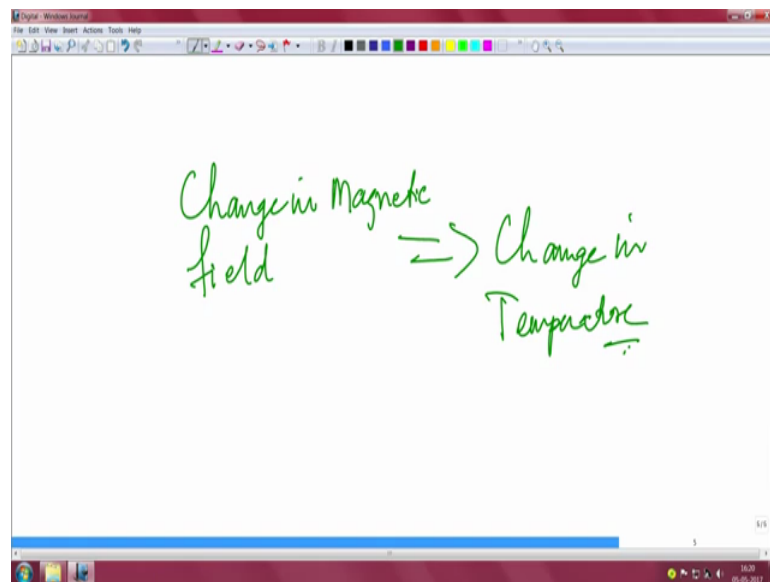 Digital - Windows Journal
File Edit View Insert Actions Tools Help
B I
Change in Magnetic
field
=> Change in
Temperature
5/5
5
16:20
05-05-2017